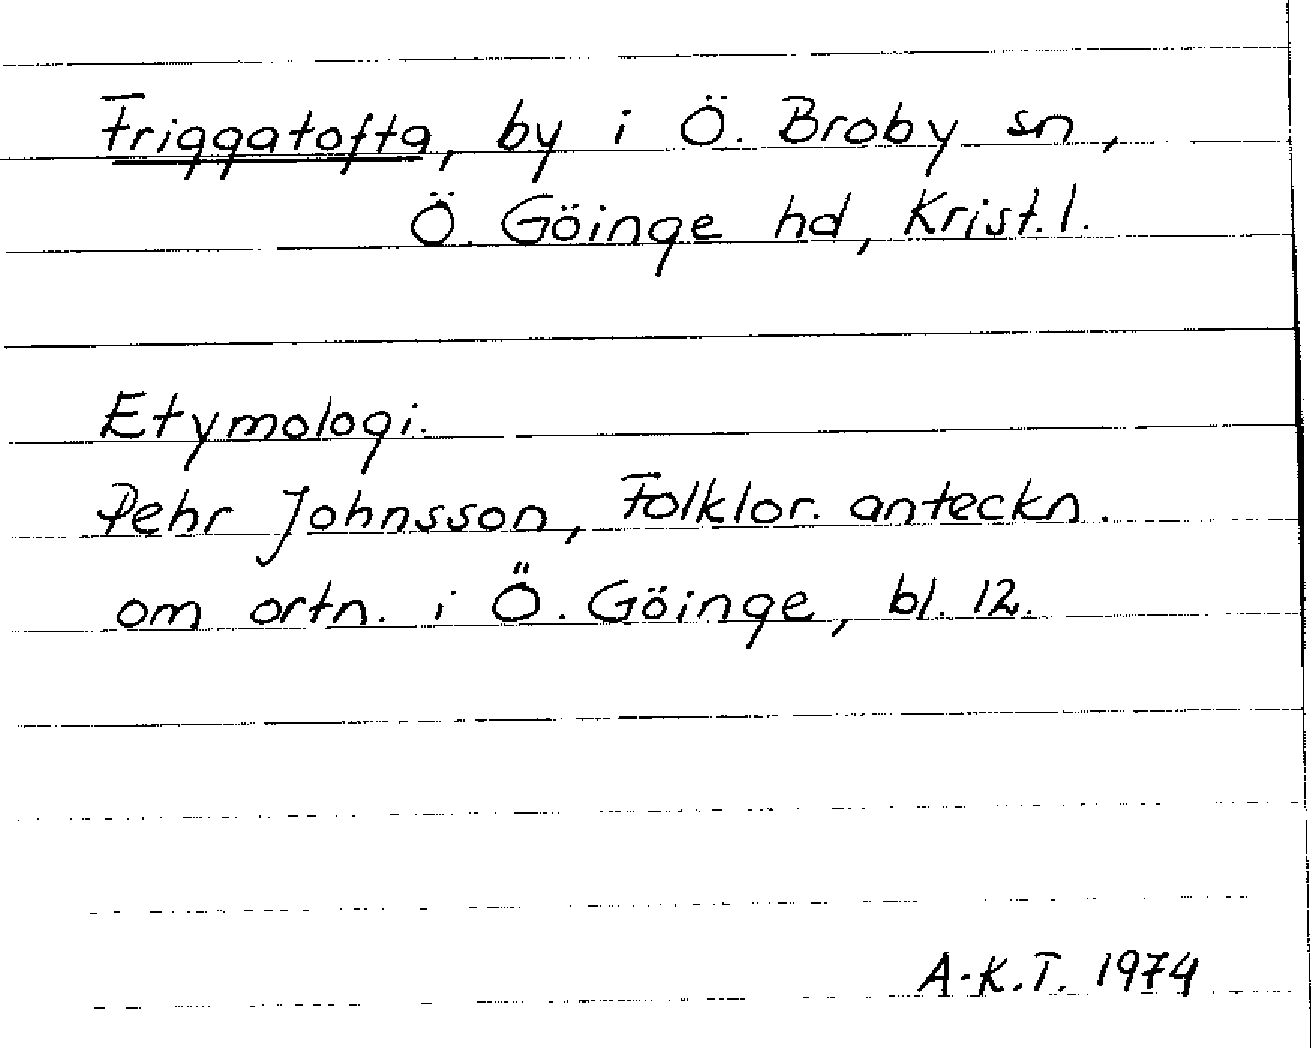 Friggatofta, by i Ö. Broby sn,
Ö. Göinge hd, Krist. l.
Etymologi.
Pehr Johnsson, Folklor. anteckn.
om ortn. i Ö. Göinge, bl. 12.
A-K.T. 1974